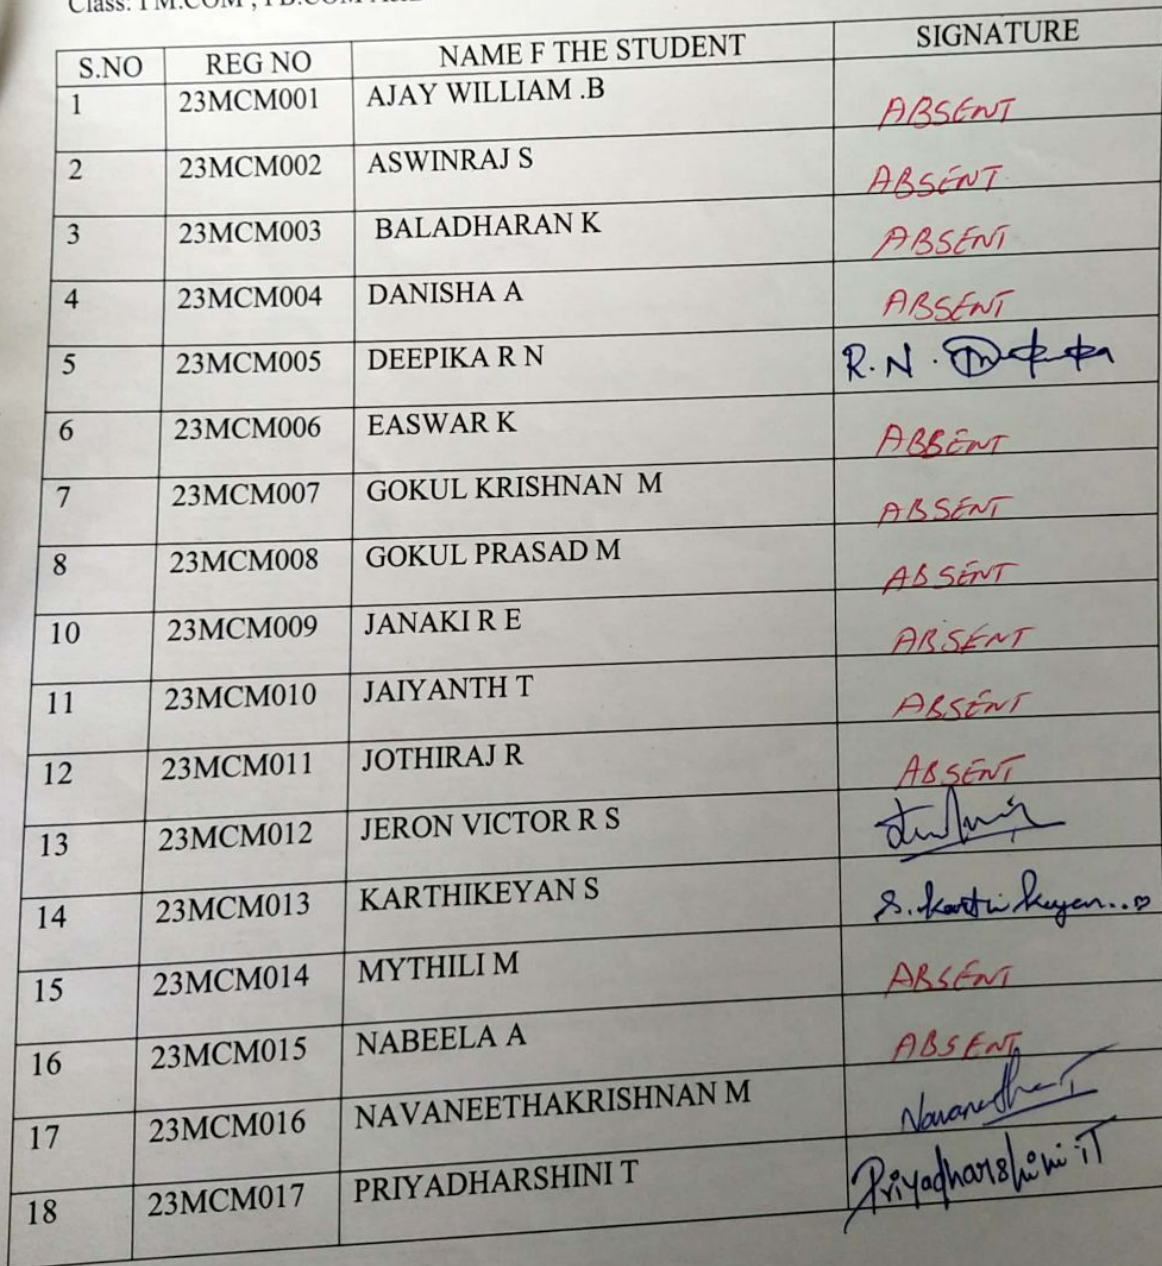 Class: I M.COM , I B.COM
S.NO REG NO NAME F THE STUDENT SIGNATURE
1 23MCM001 AJAY WILLIAM .B ABSENT
2 23MCM002 ASWINRAJ S ABSENT
3 23MCM003 BALADHARAN K ABSENT
4 23MCM004 DANISHA A ABSENT
5 23MCM005 DEEPIKA R N R.N.
6 23MCM006 EASWAR K ABSENT
7 23MCM007 GOKUL KRISHNAN M ABSENT
8 23MCM008 GOKUL PRASAD M ABSENT
10 23MCM009 JANAKI R E ABSENT
11 23MCM010 JAIYANTH T ABSENT
12 23MCM011 JOTHIRAJ R ABSENT
13 23MCM012 JERON VICTOR R S
14 23MCM013 KARTHIKEYAN S S. Karthikeyan..
15 23MCM014 MYTHILI M ABSENT
16 23MCM015 NABEELA A ABSENT
17 23MCM016 NAVANEETHAKRISHNAN M
18 23MCM017 PRIYADHARSHINI T Priyadharshini T